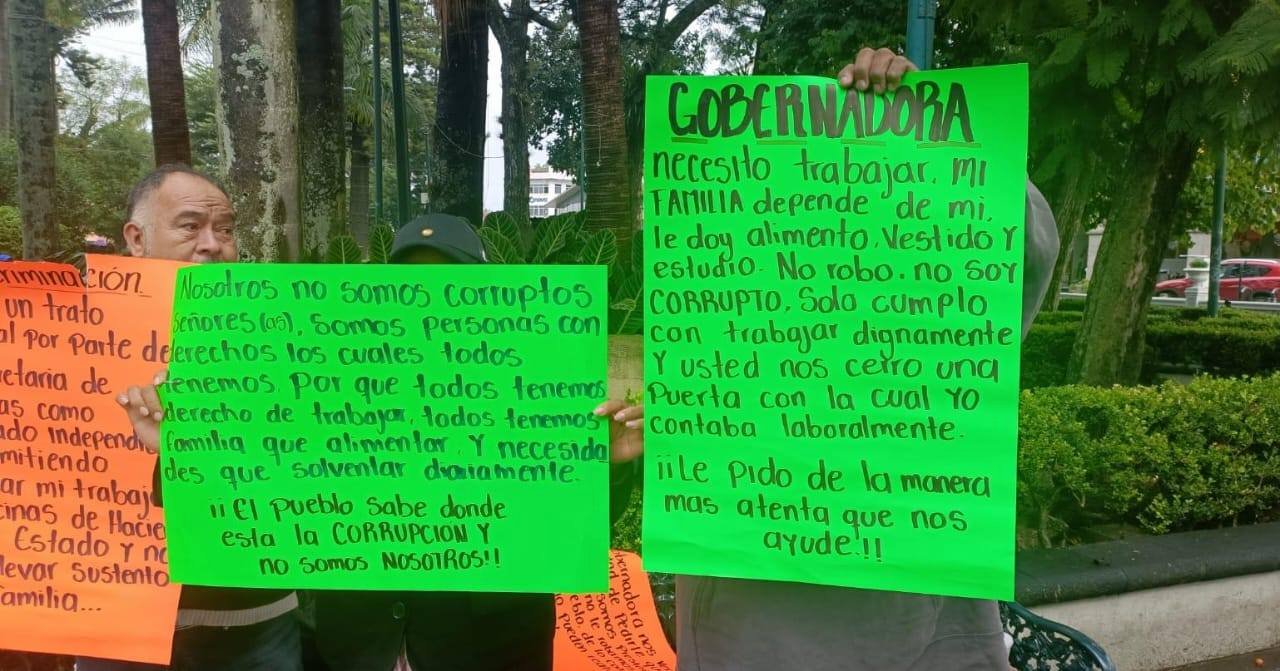 criminación.
un trato
al por parte de
etaria de
as como
ado Independi
mitiendo
ar mi trabajo
cinas de Hacie
Estado y no
llevar sustento
familia...
Nosotros no somos corruptos
señores(as), somos personas con
derechos los cuales todos
tenemos. Por que todos tenemos
derecho de trabajar, todos tenemos
familia que alimentar. Y necesida
des que solventar diariamente.
¡¡El pueblo sabe donde
esta la CORRUPCION Y
no somos NOSOTROS!!
GOBERNADORA
necesito trabajar. MI
FAMILIA depende de mi,
le doy alimento, Vestido Y
estudio. No robo. no SOY
CORRUPTO, Solo cumplo
con trabajar dignamente
Y usted nos cerro una
Puerta con la cual YO
contaba laboralmente.
¡¡Le pido de la manera
mas atenta que nos
ayude!!
bernadora
de Pedirle
somos